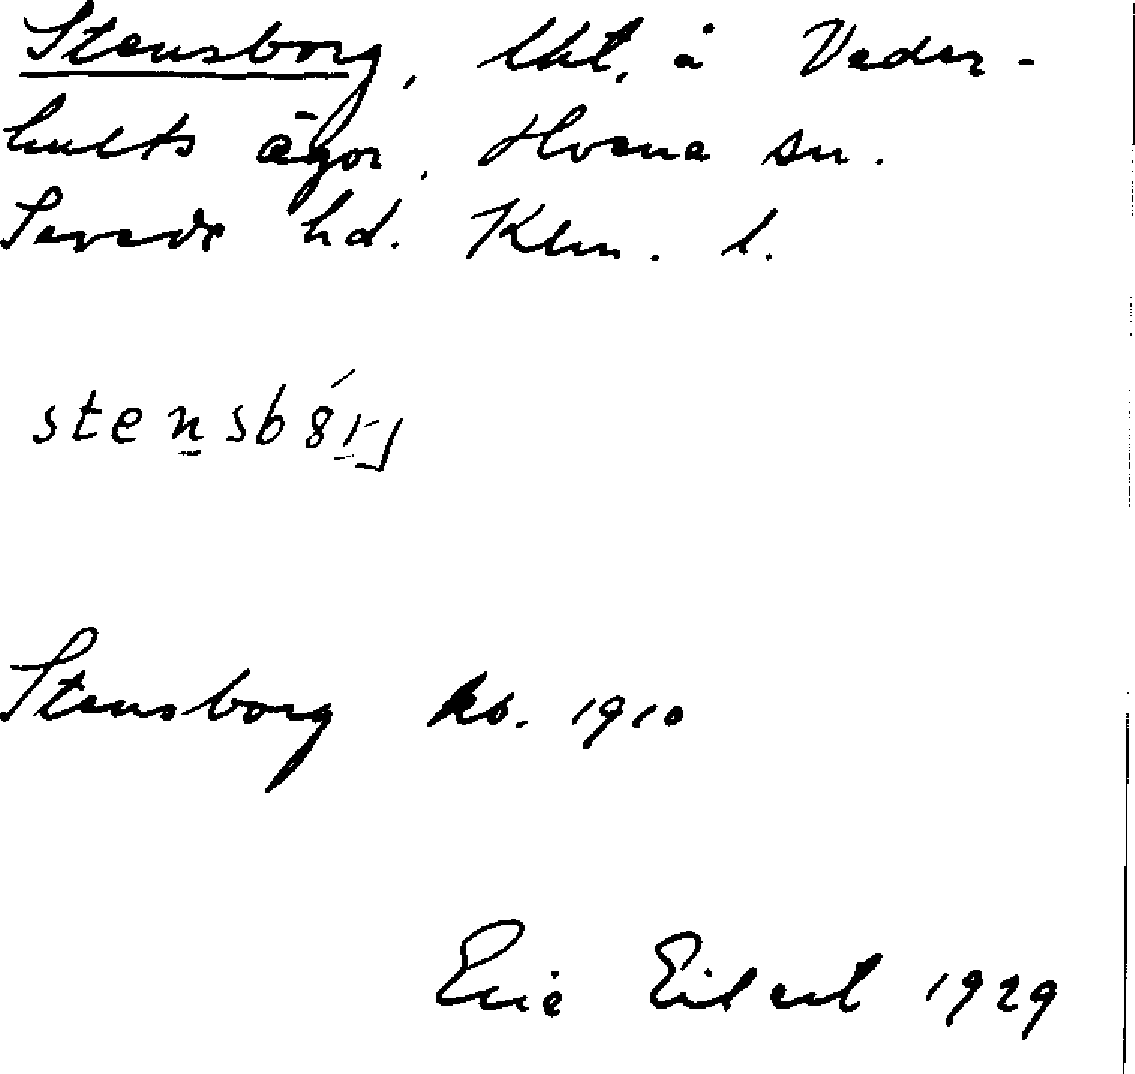 Stensborg, lht. å Veder-
hults ägor, Hvena sn.
Sevede hd. Klm. l.
Stensborg kb. 1910
Eric Eilert 1929